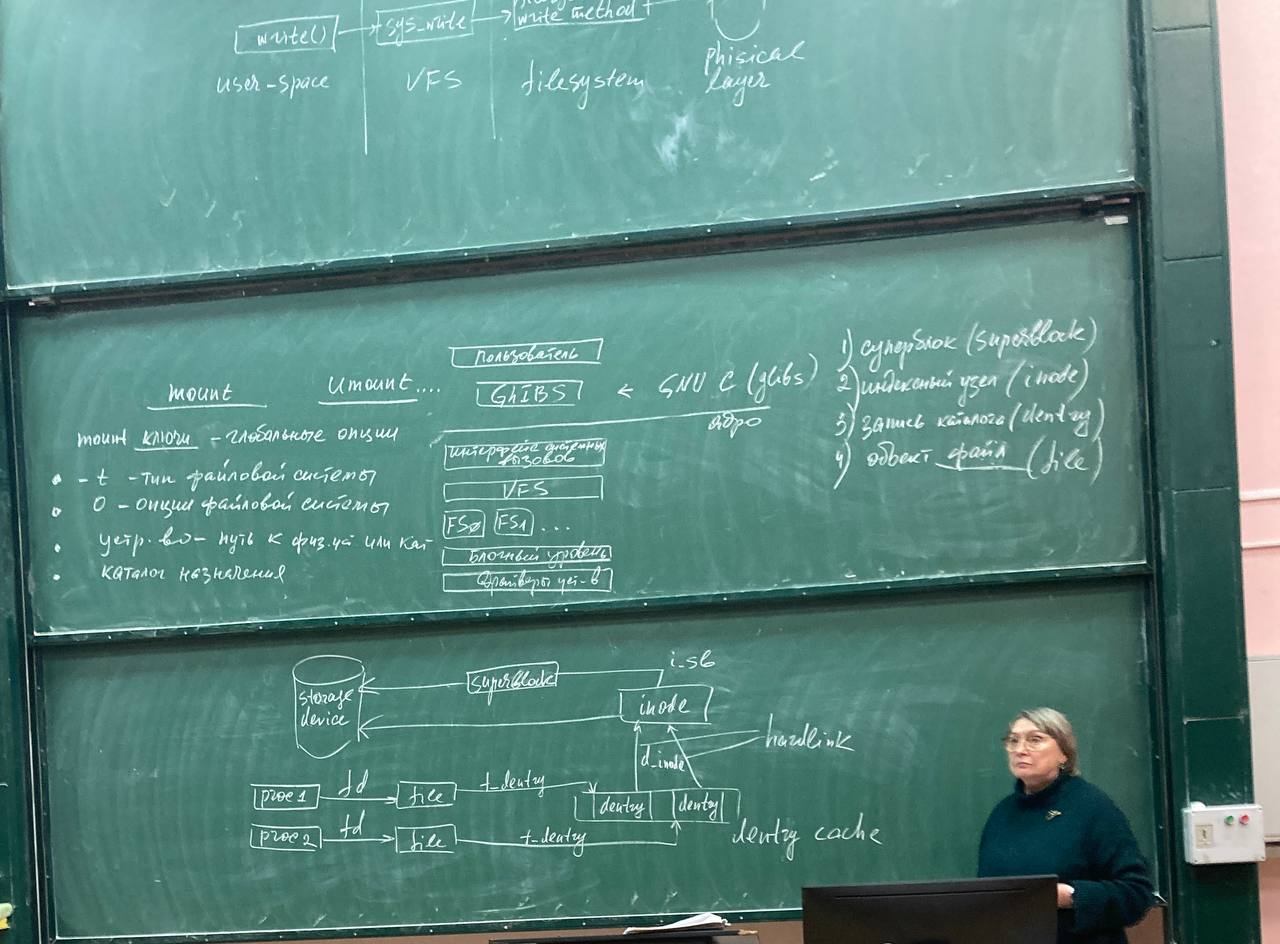 write() sys_write write method
user-space VFS filesystem phisical
layer
mount umount....
mount ключи - глобальные опции
- t - тип файловой системы
O - опции файловой системы
устр.во - путь к физ.уст или кат
каталог назначения
пользователь
GLIBS ← GNU C (glibs)
ядро
интерфейс системных
вызовов
VFS
FS0 FS1 ...
Блочный уровень
Драйверы уст-в
1) суперблок (superblock)
2) индексный узел (inode)
3) запись каталога (dentry)
4) объект файл (file)
storage
device
superblock
i_sb
inode
d_inode
hardlink
proc 1 fd file f_dentry dentry dentry
proc 2 fd file f_dentry
dentry cache